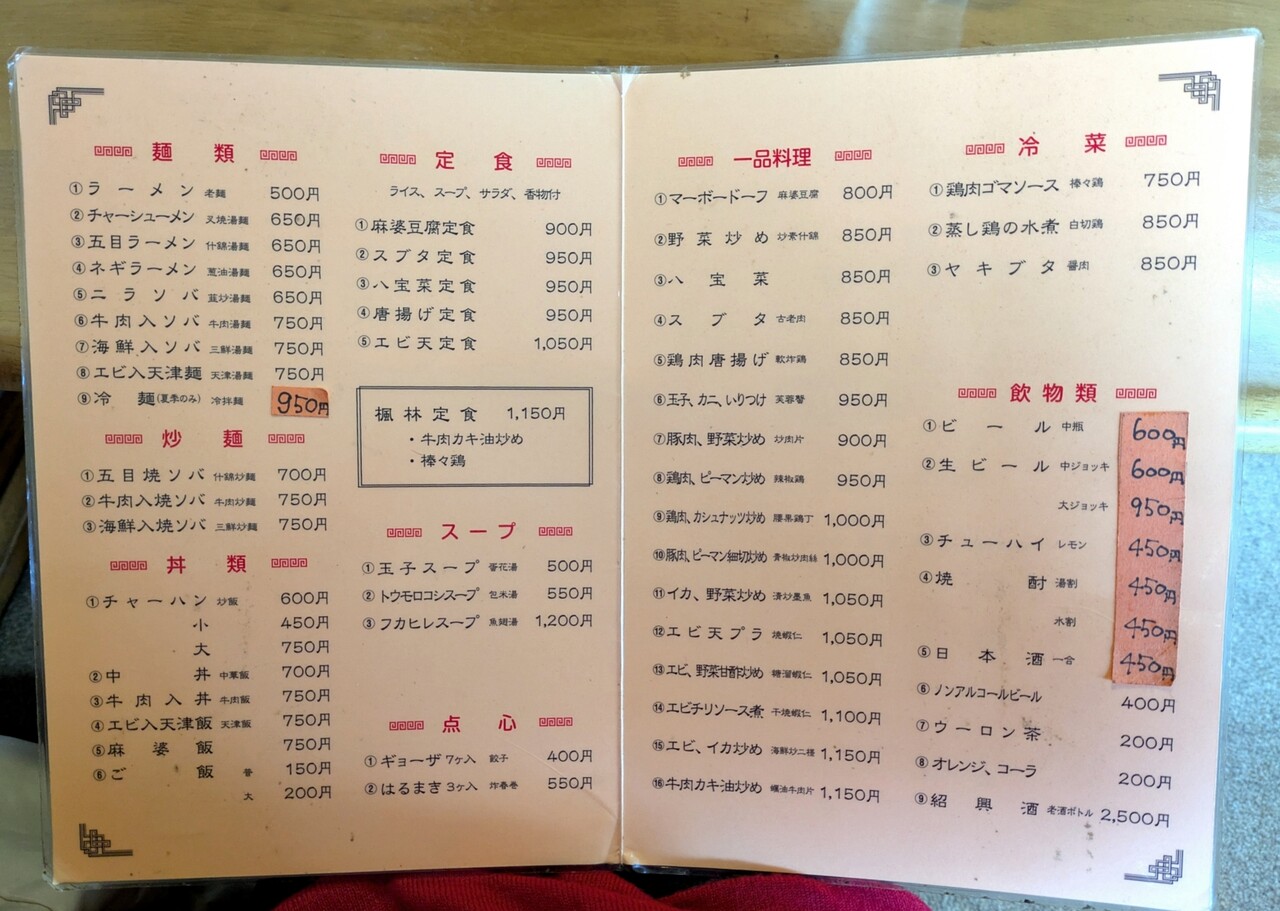 麺 類
①ラーメン 老麺 500円
②チャーシューメン 叉焼湯麺 650円
③五目ラーメン 什錦湯麺 650円
④ネギラーメン 葱油湯麺 650円
⑤ニラソバ 韮炒湯麺 650円
⑥牛肉入ソバ 牛肉湯麺 750円
⑦海鮮入ソバ 三鮮湯麺 750円
⑧エビ入天津麺 天津湯麺 750円
⑨冷 麺(夏季のみ) 冷拌麺 950円
炒 麺
①五目焼ソバ 什錦炒麺 700円
②牛肉入焼ソバ 牛肉炒麺 750円
③海鮮入焼ソバ 三鮮炒麺 750円
丼 類
①チャーハン 炒飯 600円
小 450円
大 750円
②中 丼 中華飯 700円
③牛肉入丼 牛肉飯 750円
④エビ入天津飯 天津飯 750円
⑤麻婆飯 750円
⑥ご 飯 普 150円
大 200円
定 食
ライス、スープ、サラダ、香物付
①麻婆豆腐定食 900円
②スブタ定食 950円
③八宝菜定食 950円
④唐揚げ定食 950円
⑤エビ天定食 1,050円
楓林定食 1,150円
・牛肉カキ油炒め
・棒々鶏
スープ
①玉子スープ 蛋花湯 500円
②トウモロコシスープ 包米湯 550円
③フカヒレスープ 魚翅湯 1,200円
点 心
①ギョーザ 7ヶ入 餃子 400円
②はるまき 3ヶ入 炸春巻 550円
一品料理
①マーボードーフ 麻婆豆腐 800円
②野菜炒め 炒素什錦 850円
③八宝菜 850円
④スブタ 古老肉 850円
⑤鶏肉唐揚げ 軟炸鶏 850円
⑥玉子、カニ、いりつけ 芙蓉蟹 950円
⑦豚肉、野菜炒め 炒肉片 900円
⑧鶏肉、ピーマン炒め 辣椒鶏 950円
⑨鶏肉、カシュナッツ炒め 腰果鶏丁 1,000円
⑩豚肉、ピーマン細切炒め 青椒炒肉絲 1,000円
⑪イカ、野菜炒め 清炒墨魚 1,050円
⑫エビ天プラ 焼蝦仁 1,050円
⑬エビ、野菜甘酢炒め 糖溜蝦仁 1,050円
⑭エビチリソース煮 干焼蝦仁 1,100円
⑮エビ、イカ炒め 海鮮炒二様 1,150円
⑯牛肉カキ油炒め 蠣油牛肉片 1,150円
冷 菜
①鶏肉ゴマソース 棒々鶏 750円
②蒸し鶏の水煮 白切鶏 850円
③ヤキブタ 醤肉 850円
飲物類
①ビール 中瓶 600円
②生ビール 中ジョッキ 600円
大ジョッキ 950円
③チューハイ レモン 450円
④焼 酎 湯割 450円
水割 450円
⑤日本酒 一合 450円
⑥ノンアルコールビール 400円
⑦ウーロン茶 200円
⑧オレンジ、コーラ 200円
⑨紹興酒 老酒ボトル 2,500円